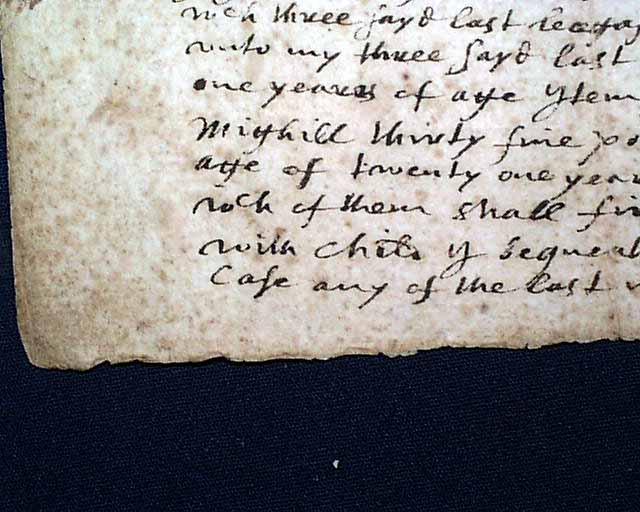 wch three sayd last legas
unto my three sayd last
one yeares of age Ytem
Mighill thirty five po
age of twenty one year
wch of them shall fir
with child y bequeat
Case any of the last